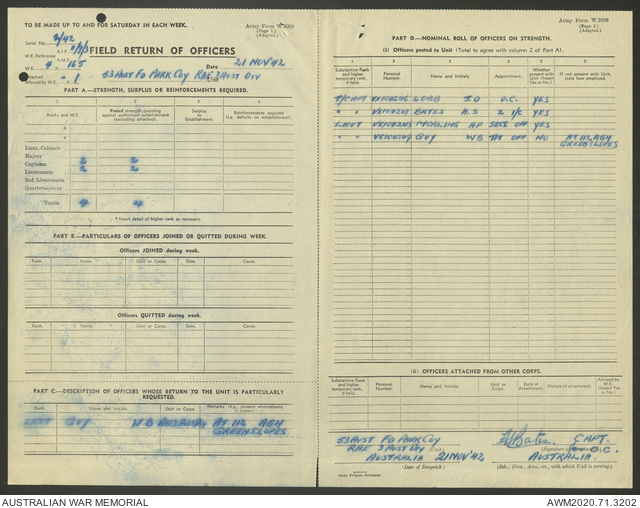 TO BE MADE UP TO AND FOR SATURDAY IN EACH WEEK.
Army Form W.3008
(Page 1.)
(Adapted.)
Serial No. 2/42
FIELD RETURN OF OFFICERS
W.E. Reference
A.I.F.
A.M.F.
W.E. 4 x 165
Attached
Allowed by W.E. x 1
53 AUST FD PARK COY RAE 3 AUST DIV
(Unit)
Date 21 NOV '42
PART A.—STRENGTH, SURPLUS OR REINFORCEMENTS REQUIRED.
1 2 3 4
Ranks and W.E.
Posted strength counting against authorized establishment (excluding attached).
Surplus to Establishment.
Reinforcements required (i.e. deficits on establishment).
Lieut. Colonels
Majors
Captains 2 2
Lieutenants 2 2
2nd Lieutenants
Quartermasters
Totals 4 4
* Insert detail of higher rank as necessary.
PART B.—PARTICULARS OF OFFICERS JOINED OR QUITTED DURING WEEK.
Officers JOINED during week.
Rank. Name. Unit or Corps. Date. Cause.
Officers QUITTED during week.
Rank. Name. Unit or Corps. Date. Cause.
PART C.—DESCRIPTION OF OFFICERS WHOSE RETURN TO THE UNIT IS PARTICULARLY REQUESTED.
Rank. Name and Initials. Unit or Corps. Remarks (e.g., present whereabouts, if known).
LIEUT GUY W B AT 112 AGH
GREENSLOPES
Army Form W.3008
(Page 2.)
(Adapted.)
PART D.—NOMINAL ROLL OF OFFICERS ON STRENGTH.
(i) Officers posted to Unit (Total to agree with column 2 of Part A).
1 2 3 4 5 6
Substantive Rank and higher temporary rank, if held.
Personal Number.
Name and Initials.
Appointment.
Whether present with Unit (Insert Yes or No.)
If not present with Unit, state how employed.
T/CAPT LOBB J.D O.C. YES
" " BATES A.S 2 I/C YES
LIEUT MORLING AP SECT OFF YES
" " GUY W B OFF NO AT 112 AGH
GREENSLOPES
(ii) OFFICERS ATTACHED FROM OTHER CORPS.
Substantive Rank and higher temporary rank, if held.
Personal Number.
Name and Initials.
Unit or Corps.
Date of Attachment.
Nature of attachment.
Allowed by W.E. (Insert Yes or No.)
53 AUST FD PARK COY
(Unit)
RAE 3 AUST DIV
AUSTRALIA 21 NOV '42
(Date of Despatch.)
Bates CAPT.
(Signature of O.C.
AUSTRALIA.
(Bde., Divn., Area, etc., with which Unit is serving.)
AUSTRALIAN WAR MEMORIAL
AWM2020.71.3202